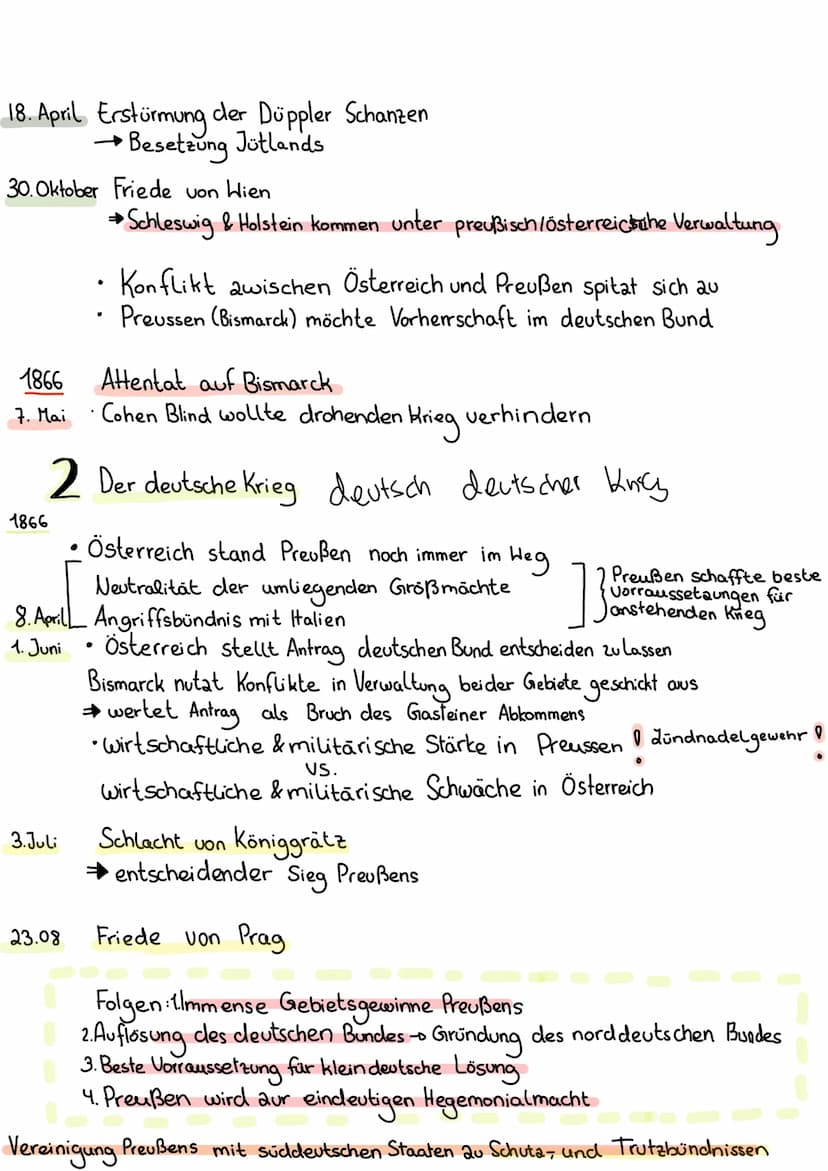 18. April Erstürmung der Düppler Schanzen
→ Besetzung Jütlands
30. Oktober Friede von Wien
→ Schleswig & Holstein kommen unter preußisch/österreichische Verwaltung
• Konflikt zwischen Österreich und Preußen spitzt sich zu
• Preussen (Bismarck) möchte Vorherrschaft im deutschen Bund
1866 Attentat auf Bismarck
7. Mai • Cohen Blind wollte drohenden Krieg verhindern
2 Der deutsche Krieg deutsch deutscher Krieg
1866
• Österreich stand Preußen noch immer im Weg
Neutralität der umliegenden Großmächte
8. April Angriffsbündnis mit Italien
Preußen schaffte beste
Vorraussetzungen für
anstehenden Krieg
1. Juni • Österreich stellt Antrag deutschen Bund entscheiden zu lassen
Bismarck nutzt Konflikte in Verwaltung beider Gebiete geschickt aus
⇒ wertet Antrag als Bruch des Gasteiner Abkommens
• wirtschaftliche & militärische Stärke in Preussen ! Zündnadelgewehr !
vs.
wirtschaftliche & militärische Schwäche in Österreich
3. Juli Schlacht von Königgrätz
⇒ entscheidender Sieg Preußens
23.08 Friede von Prag
Folgen: 1. Immense Gebietsgewinne Preußens
2. Auflösung des deutschen Bundes → Gründung des norddeutschen Bundes
3. Beste Vorraussetzung für kleindeutsche Lösung
4. Preußen wird zur eindeutigen Hegemonialmacht
Vereinigung Preußens mit süddeutschen Staaten zu Schutz- und Trutzbündnissen